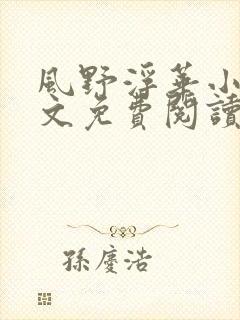 風野浮華小
文免費閱讀
孫慶浩